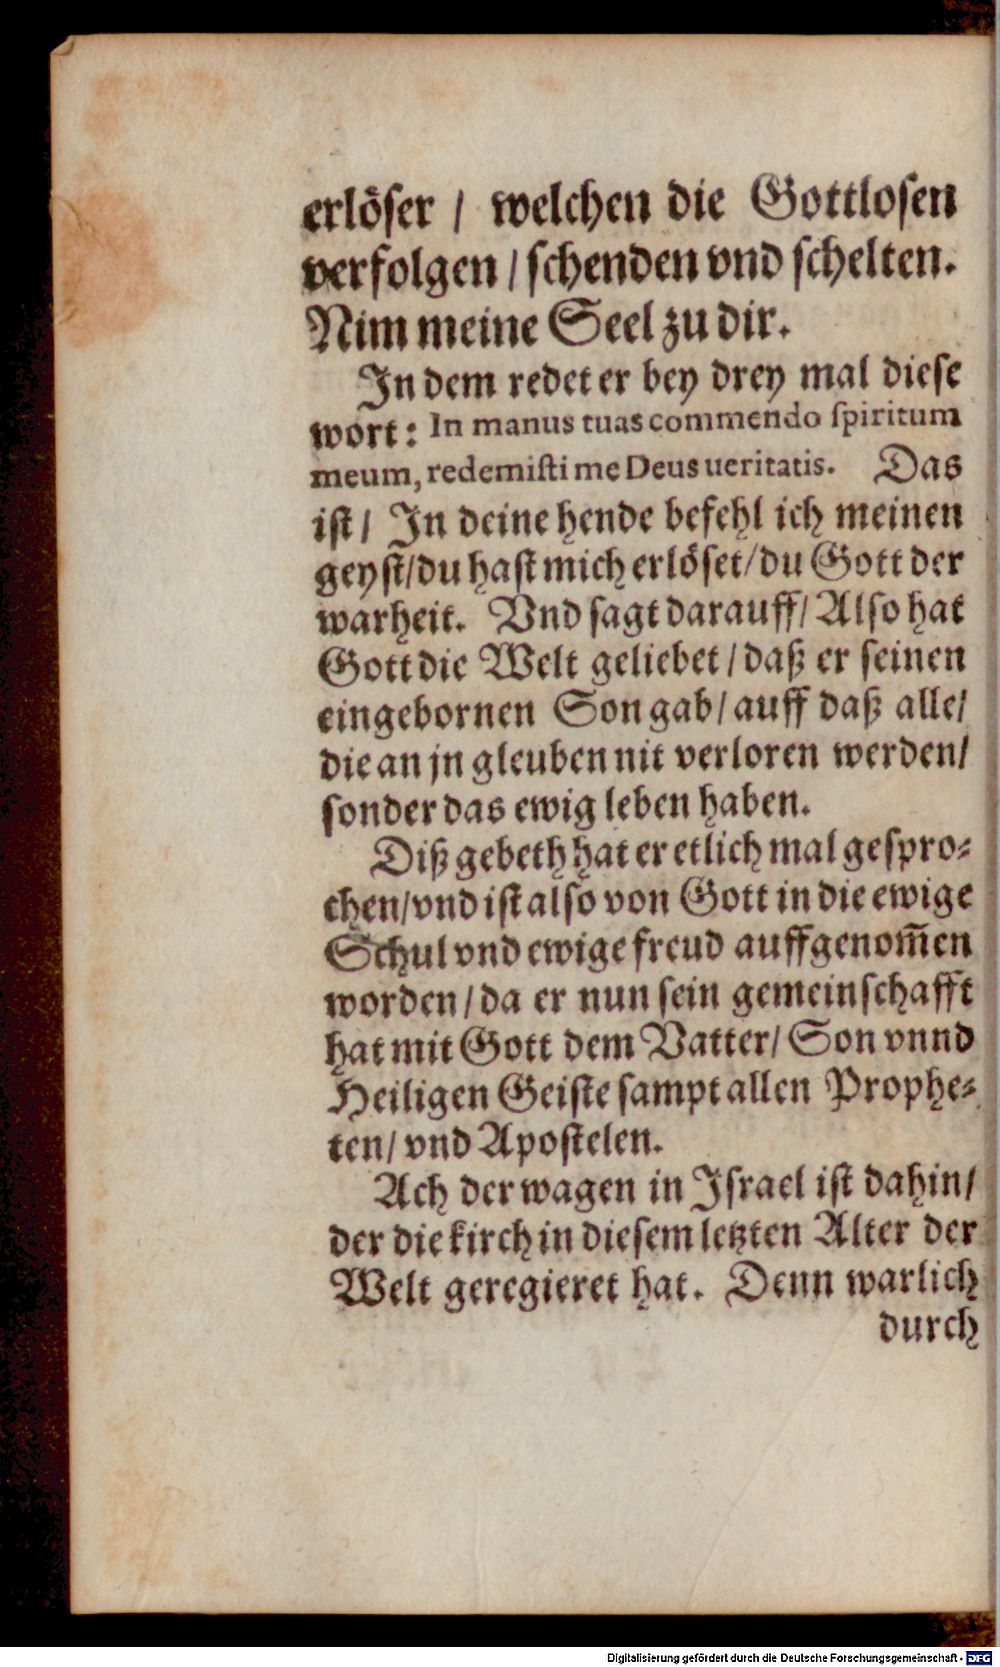 erlöser / welchen die Gottlosen
verfolgen / schenden vnd schelten.
Nim meine Seel zu dir.
In dem redet er bey drey mal diese
wort: In manus tuas commendo spiritum
meum, redemisti me Deus ueritatis. Das
ist / In deine hende befehl ich meinen
geyst/du hast mich erlöset/du Gott der
warheit. Vnd sagt darauff/ Also hat
Gott die Welt geliebet / daß er seinen
eingebornen Son gab / auff daß alle/
die an jn gleuben nit verloren werden/
sonder das ewig leben haben.
Diß gebeth hat er etlich mal gespro⸗
chen/vnd ist also von Gott in die ewige
Schul vnd ewige freud auffgenom̃en
worden / da er nun sein gemeinschafft
hat mit Gott dem Vatter/ Son vnnd
Heiligen Geiste sampt allen Prophe⸗
ten/ vnd Apostelen.
Ach der wagen in Israel ist dahin/
der die kirch in diesem letzten Alter der
Welt geregieret hat. Denn warlich
durch
Digitalisierung gefördert durch die Deutsche Forschungsgemeinschaft - DFG